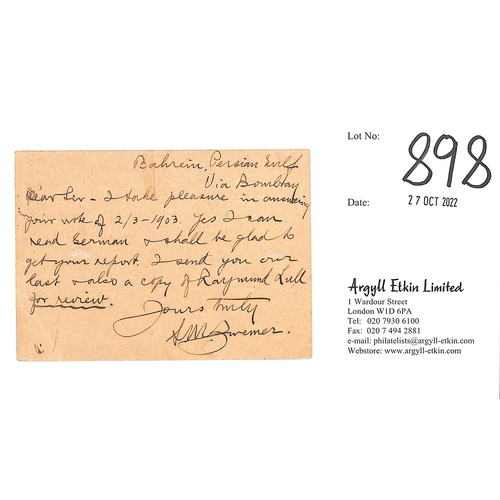 Bahrein, Persian Gulf
Via Bombay
Dear Sir - I take pleasure in answering
your note of 2/3-1903. Yes I can
read German & shall be glad to
get your report. I send you our
last & also a copy of Raymund Lull
for review.
Yours truly
S.M. Zwemer.
Lot No: 898
Date: 27 OCT 2022
Argyll Etkin Limited
1 Wardour Street
London W1D 6PA
Tel: 020 7930 6100
Fax: 020 7 494 2881
e-mail: philatelists@argyll-etkin.com
Webstore: www.argyll-etkin.com